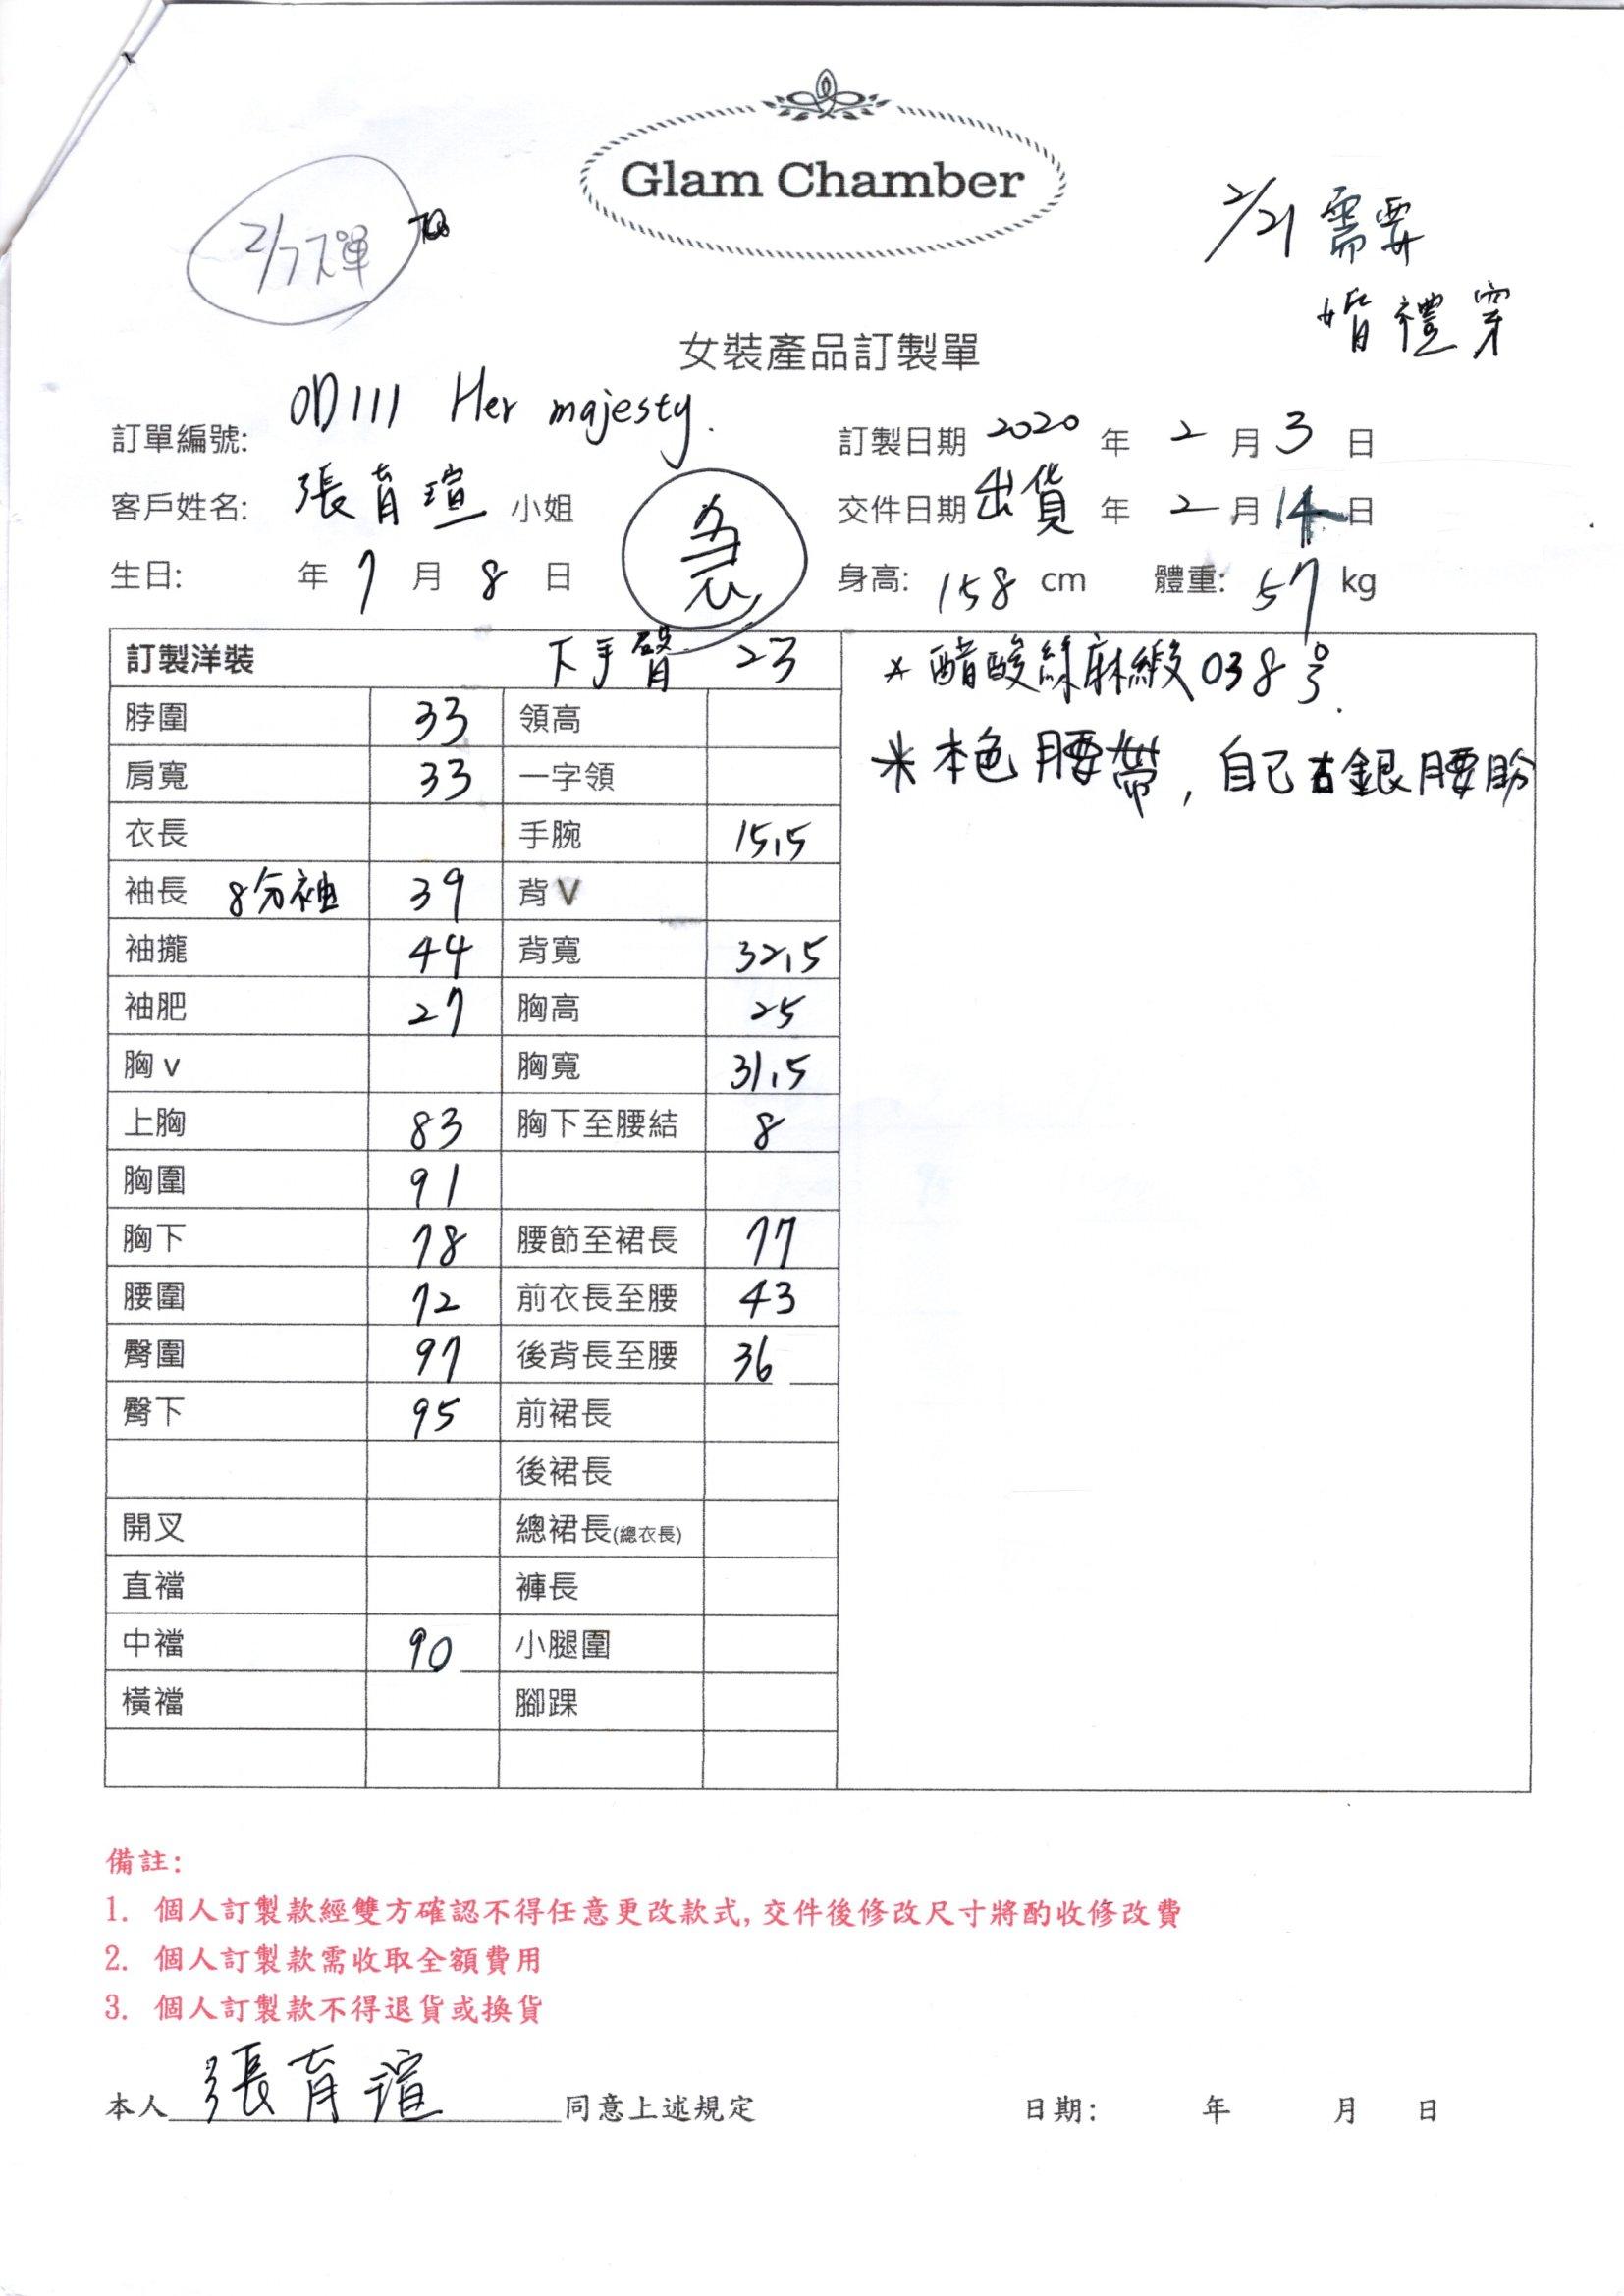 Glam Chamber
2/7下單
2/21 需要
婚禮穿
女裝產品訂製單
訂單編號: OD111 Her majesty.
訂製日期 2020 年 2 月 3 日
客戶姓名: 張育瑄 小姐
急
交件日期 出貨 年 2 月 14 日
生日: 年 7 月 8 日
身高: 158 cm 體重: 57 kg
訂製洋裝 下手臂 23
*醋酸絲麻緞038号.
*本色腰帶, 自己古銀腰
脖圍 33 領高
肩寬 33 一字領
衣長 手腕 15.5
袖長 8分袖 39 背V
袖攏 44 背寬 32.5
袖肥 27 胸高 25
胸v 胸寬 31.5
上胸 83 胸下至腰結 8
胸圍 91
胸下 78 腰節至裙長 77
腰圍 72 前衣長至腰 43
臀圍 97 後背長至腰 36
臀下 95 前裙長
後裙長
開叉 總裙長(總衣長)
直襠 褲長
中襠 90 小腿圍
橫襠 腳踝
備註:
1. 個人訂製款經雙方確認不得任意更改款式,交件後修改尺寸將酌收修改費
2. 個人訂製款需收取全額費用
3. 個人訂製款不得退貨或換貨
本人 張育瑄 同意上述規定 日期: 年 月 日